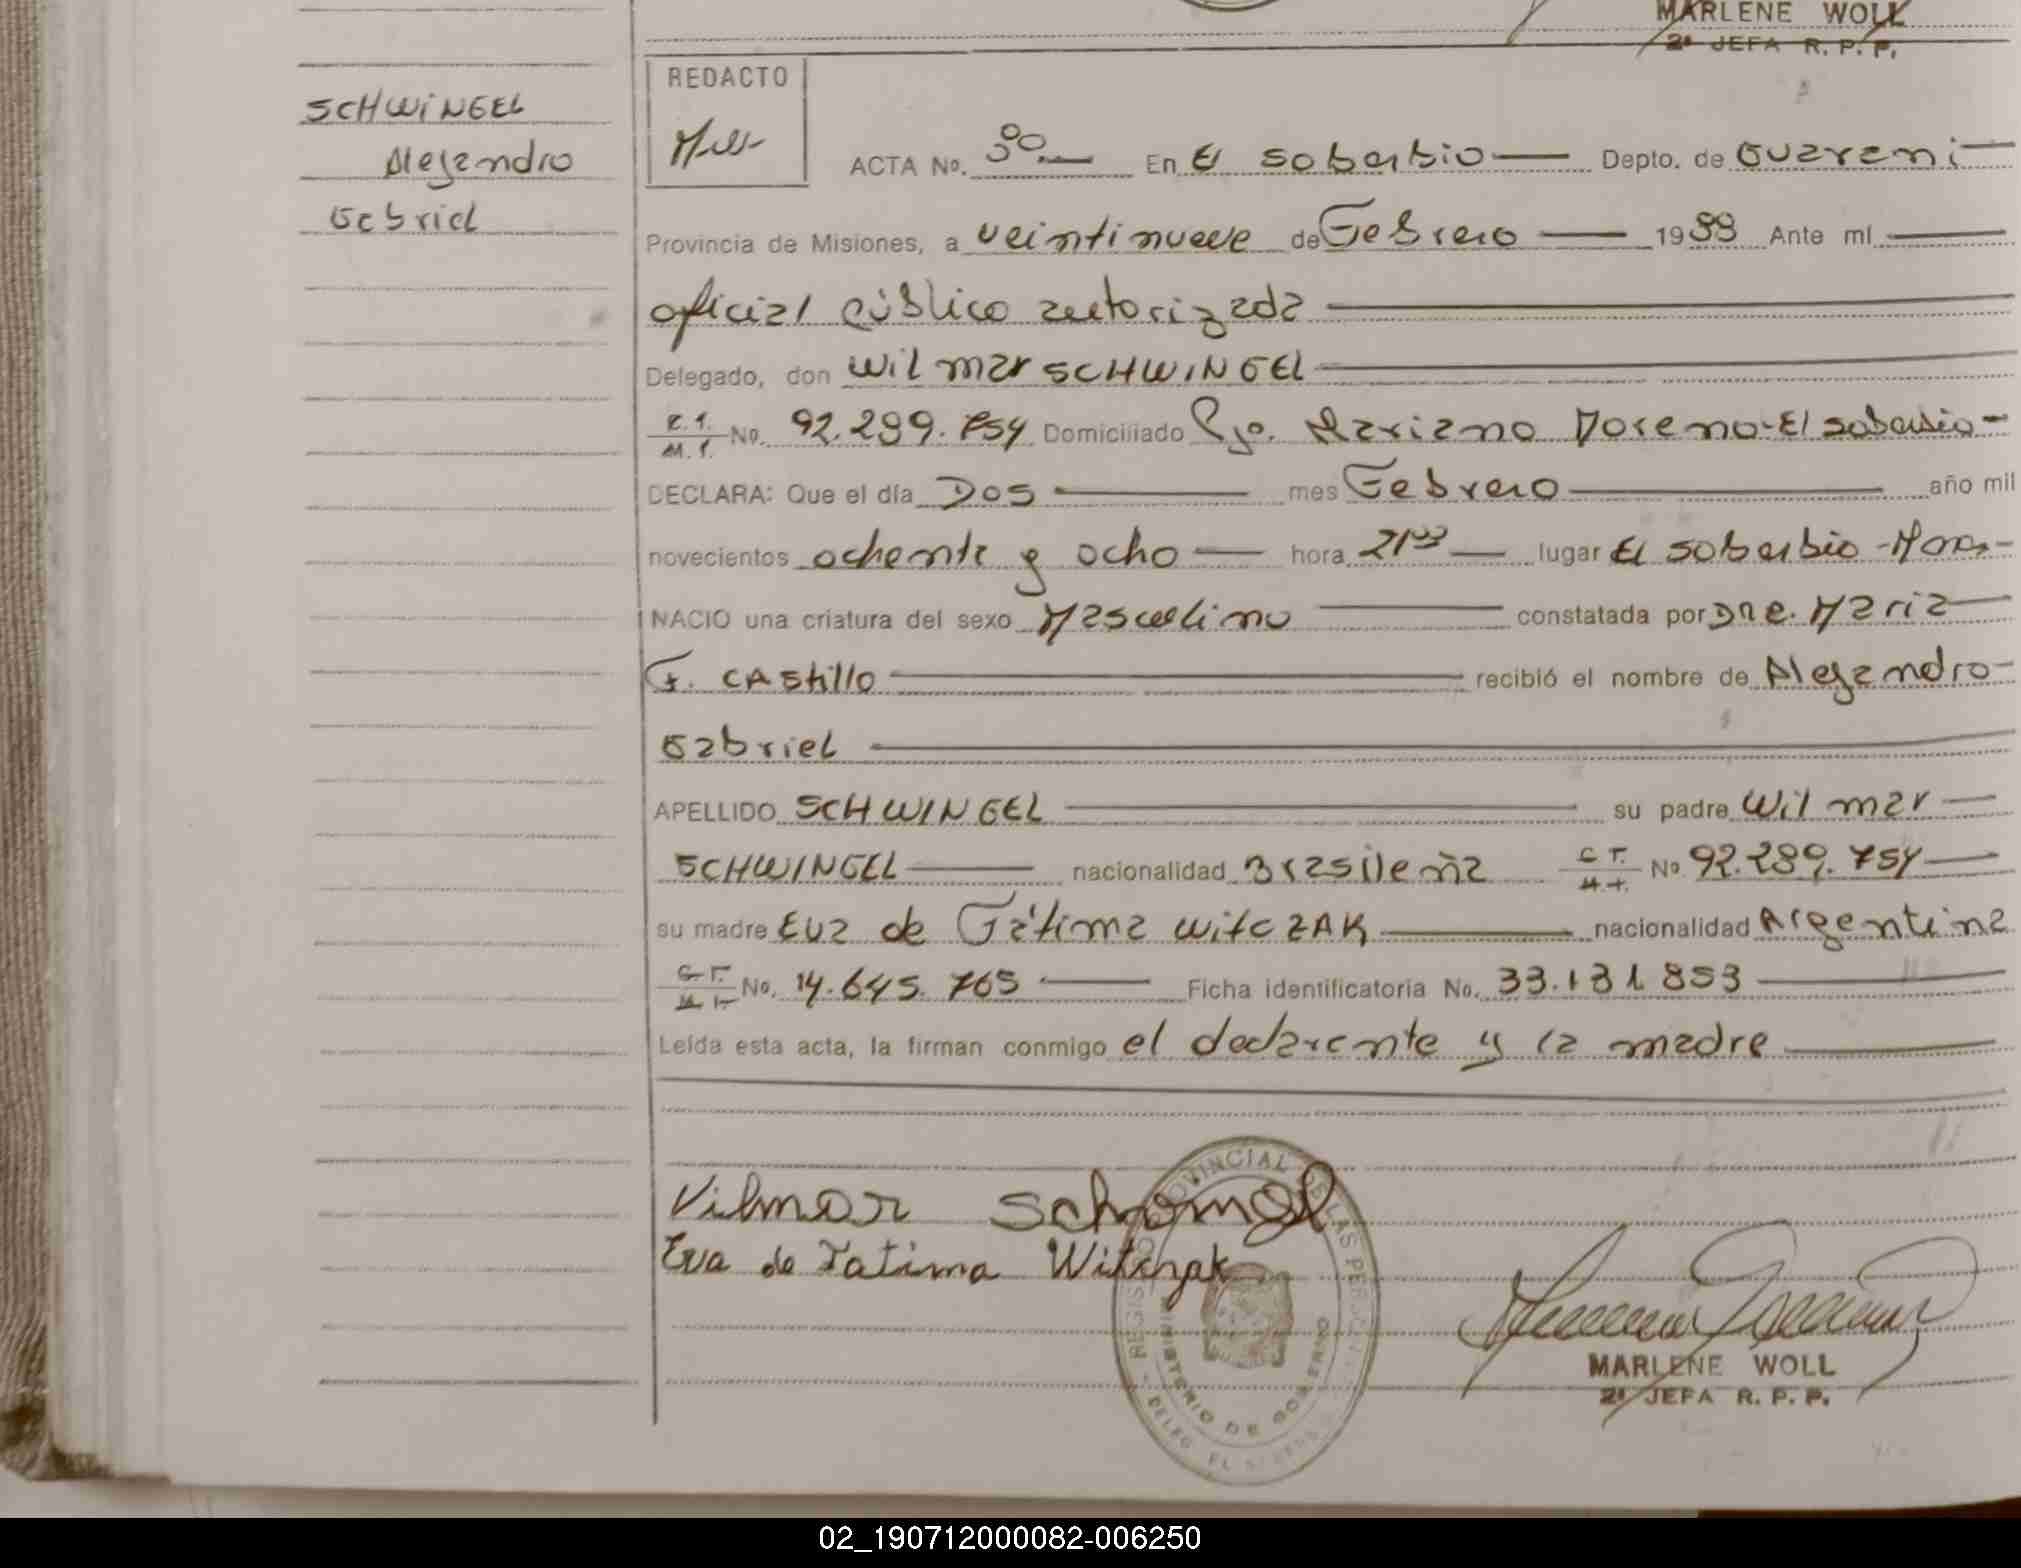 MARLENE WOLL
2ª JEFA R. P. P.
REDACTO
SCHWINGEL
Alejandro
Gabriel
ACTA No. 30 En El Soberbio Depto. de Guarani
Provincia de Misiones, a veintinueve de Febrero 1988 Ante mí
oficial público autorizada
Delegado, don Wilmar SCHWINGEL
C.I. M.I. No. 92.289.754 Domiciliado Pje. Mariano Moreno-El soberbio-
DECLARA: Que el día Dos mes Febrero año mil
novecientos ochenta y ocho hora 21 lugar El soberbio
NACIO una criatura del sexo Masculino constatada por Dra. Maria
F. CAStillo recibió el nombre de Alejandro
Gabriel
APELLIDO SCHWINGEL su padre Wilmar
SCHWINGEL nacionalidad Brasileña C.I. M.I. No 92.289.754
su madre Eva de Fátima WitcZAK nacionalidad Argentina
C.I. M.I. No. 14.645.765 Ficha identificatoria No. 33.131853
Leída esta acta, la firman conmigo el declarante y la madre
Vilmar
Eva de Fatima Witczak
REGISTRO PROVINCIAL DE LAS PERSONAS
MINISTERIO DE GOBIERNO
DELEG. EL SOBERBIO
MARLENE WOLL
2ª JEFA R. P. P.
02_190712000082-006250